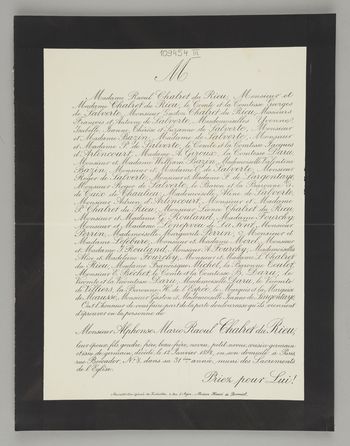 109454 III
M
Madame Raoul Chalret du Rieu, Monsieur et
Madame Chalret du Rieu, le Comte et la Comtesse Georges
de Salverte, Monsieur Gaston Chalret du Rieu, Messieurs
François et Antoine de Salverte, Mesdemoiselles Yvonne,
Isabelle, Jeanne, Thérèse et Suzanne de Salverte, Monsieur
et Madame Bazin, Madame de Salverte, Monsieur
et Madame P. de Salverte, le Comte et la Comtesse Jacques
d'Arlincourt, Madame S. Giroux, la Comtesse Daru,
Monsieur et Madame William Bazin, Mademoiselle Valentine
Bazin, Monsieur et Madame C. de Salverte, Monsieur
Roger de Salverte, Monsieur et Madame F. de
Monsieur Roger de Salverte, le Baron et la Baronne G.
de Caix de Chaulieu, Mademoiselle Aline de Salverte,
Monsieur Adrien d'Arlincourt, Monsieur et Madame
P. Chalret du Rieu, Monsieur Léonce Chalret du Rieu,
Monsieur et Madame G. Rouland, Madame Fourchy,
Monsieur et Madame de La Font, Monsieur
Perrin, Mademoiselle Perrin, Monsieur et
Madame Lefébure, Monsieur et Madame Morel, Monsieur
et Madame J. Rouland, Monsieur A. Fourchy, Mademoiselle
Alice et Madame Fourchy, Monsieur et Madame J. Chalret
du Rieu, Madame Francisque Michel, la Baronne
Monsieur E. Michel, le Comte et la Comtesse B. Daru, le
Vicomte et la Vicomtesse Daru, Mademoiselle Daru, le Vicomte
de Villiers, la Baronne R. de L'Espée, le Marquis et la Marquise
de Maussé, Monsieur Gaston et Mademoiselle Jeanne de
Ont l'honneur de vous faire part de la perte douloureuse qu'ils viennent
d'éprouver en la personne de
Monsieur Alphonse Marie Raoul Chalret du Rieu,
leur époux, fils, gendre, frère, beau-frère, neveu, petit-neveu, cousin-germain
et issu de germain, décédé, le 14 Janvier 1882, en son domicile, à Paris,
rue Boccador, N.° 3, dans sa 31ème année, muni des Sacrements
de l'Église.
Priez pour Lui!